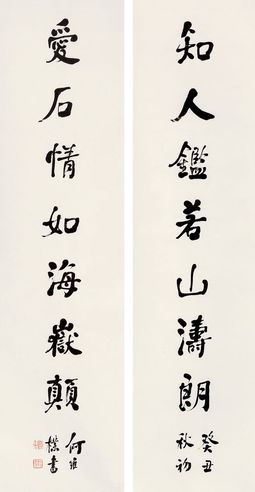 知人鑑若山濤朗
癸丑
秋初
愛石情如海嶽顛
何維
樸書